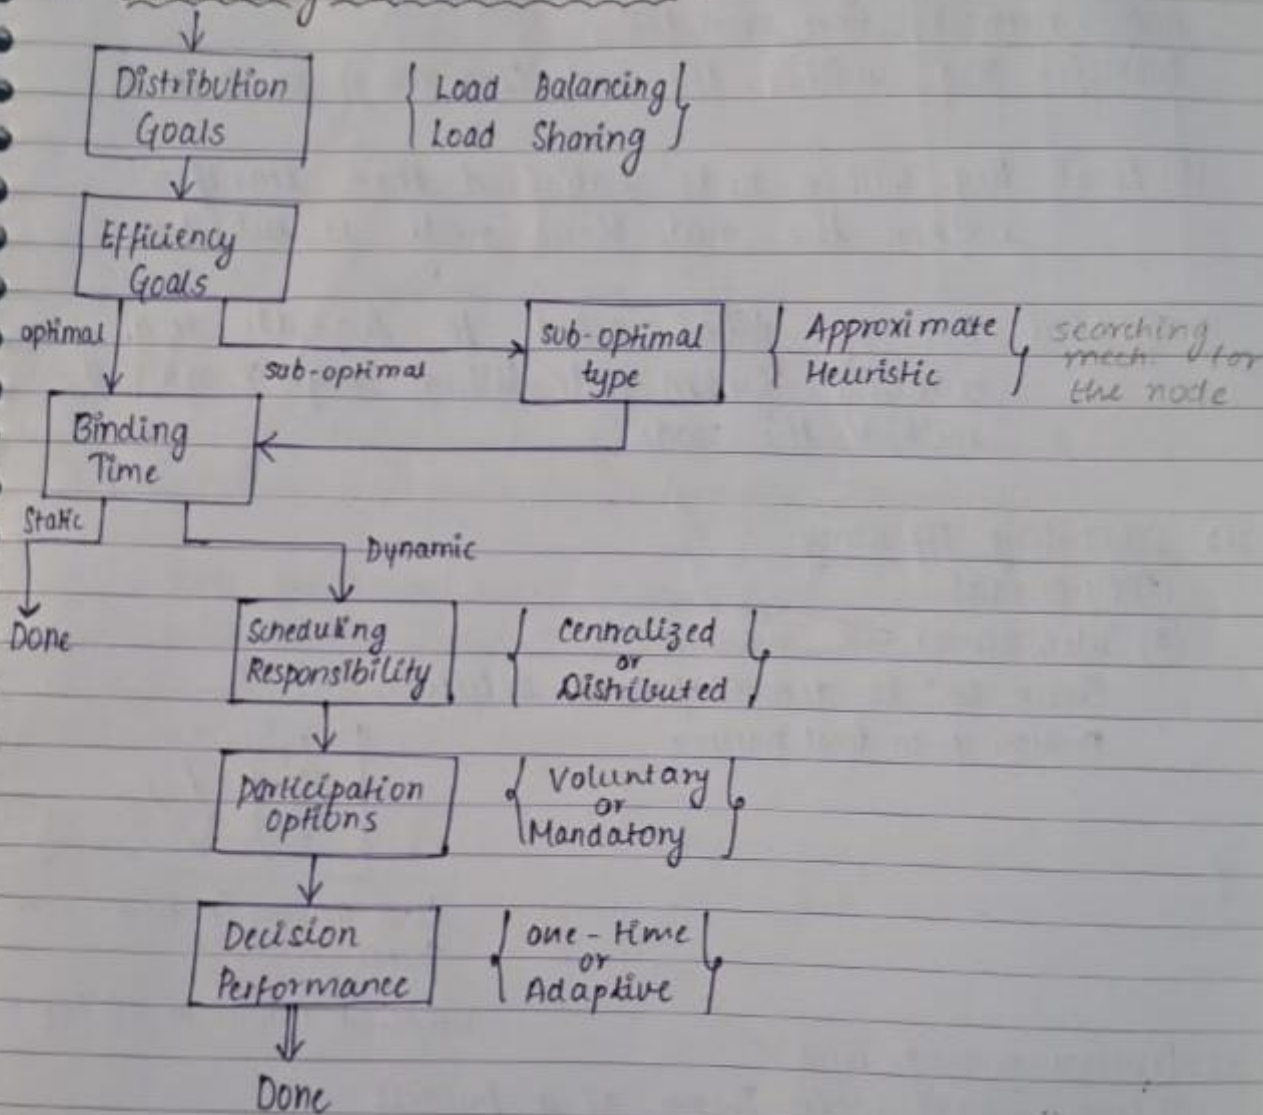 Distribution
Goals
Load Balancing
Load Sharing
Efficiency
Goals
optimal
sub-optimal
sub-optimal
type
Approximate
Heuristic
searching
mech. for
the node
Binding
Time
Static
Dynamic
Done
Scheduling
Responsibility
Centralized
or
Distributed
participation
options
Voluntary
or
Mandatory
Decision
Performance
one-time
or
Adaptive
Done